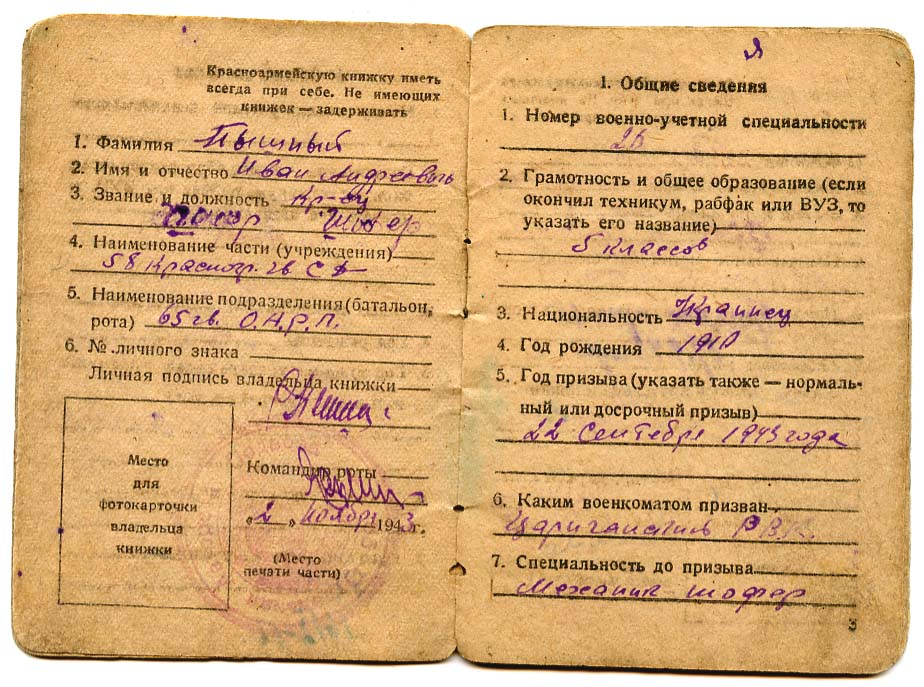 Красноармейскую книжку иметь
всегда при себе. Не имеющих
книжек — задерживать
1. Фамилия Пышный
2. Имя и отчество Иван Андреевич
3. Звание и должность Кр-ец
Шофер
4. Наименование части (учреждения)
58 Красногр. гв С Д
5. Наименование подразделения (батальон,
рота) 65 гв. О.А.Р.П.
6. № личного знака
Личная подпись владельца книжки
Командир роты
„ 2 „ ноября 1943 г.
(Место
печати части)
Место
для
фотокарточки
владельца
книжки
Я
I. Общие сведения
1. Номер военно-учетной специальности
2. Грамотность и общее образование (если
окончил техникум, рабфак или ВУЗ, то
указать его название)
5 классов
3. Национальность Украинец
4. Год рождения 1910
5. Год призыва (указать также — нормаль-
ный или досрочный призыв)
22 Сентебре 1943 года
6. Каким военкоматом призван
Царичанским Р.В.К.
7. Специальность до призыва
Механик шофер
3